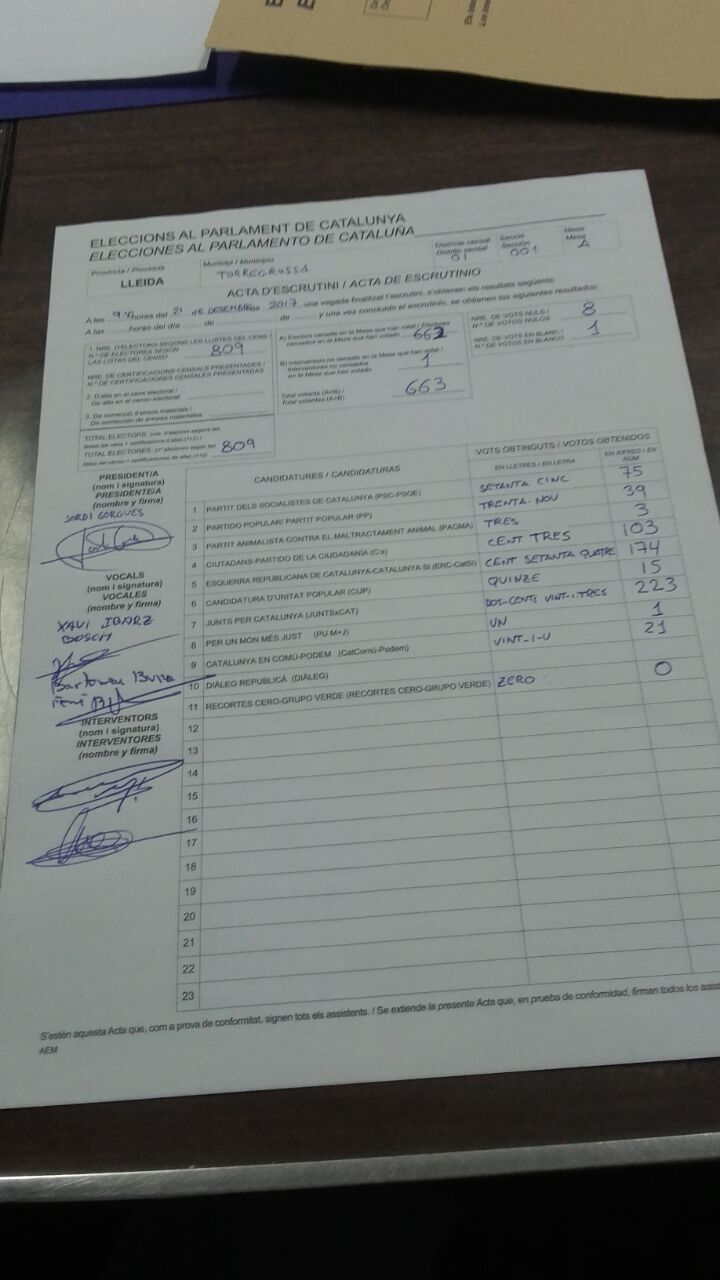 ELECCIONS AL PARLAMENT DE CATALUNYA
ELECCIONES AL PARLAMENTO DE CATALUÑA
Província / Provincia
LLEIDA
Municipi / Municipio
TORREGROSSA
Districte censal
Distrito censal
01
Secció
Sección
001
Mesa
Mesa
A
ACTA D'ESCRUTINI / ACTA DE ESCRUTINIO
A les hores del 21 de DESEMBRE de 2017, una vegada finalitzat l'escrutini, s'obtenen els resultats següents:
A las horas del día de de y una vez concluido el escrutinio, se obtienen los siguientes resultados:
1. NRE. D'ELECTORS SEGONS LES LLISTES DEL CENS /
N.º DE ELECTORES SEGÚN
LAS LISTAS DEL CENSO
809
NRE. DE CERTIFICACIONS CENSALS PRESENTADES /
N.º DE CERTIFICACIONES CENSALES PRESENTADAS
2. D'alta en el cens electoral /
De alta en el censo electoral
3. De correcció d'errors materials /
De corrección de errores materiales
TOTAL ELECTORS
TOTAL ELECTORES
809
A) Electors censats en la Mesa que han votat / Electores
censados en la Mesa que han votado
662
B) Interventors no censats en la Mesa que han votat /
Interventores no censados
en la Mesa que han votado
1
Total votants (A+B) /
Total votantes (A+B)
663
NRE. DE VOTS NULS /
N.º DE VOTOS NULOS
8
NRE. DE VOTS EN BLANC /
N.º DE VOTOS EN BLANCO
1
PRESIDENT/A
(nom i signatura)
PRESIDENTE/A
(nombre y firma)
JORDI GORGUES
VOCALS
(nom i signatura)
VOCALES
(nombre y firma)
XAVI IBARZ
BOSCH
INTERVENTORS
(nom i signatura)
INTERVENTORES
(nombre y firma)
CANDIDATURES / CANDIDATURAS
VOTS OBTINGUTS / VOTOS OBTENIDOS
EN LLETRES / EN LETRA
EN XIFRES / EN NÚM.
1 PARTIT DELS SOCIALISTES DE CATALUNYA (PSC-PSOE) SETANTA CINC 75
2 PARTIDO POPULAR/ PARTIT POPULAR (PP) TRENTA-NOU 39
3 PARTIT ANIMALISTA CONTRA EL MALTRACTAMENT ANIMAL (PACMA) TRES 3
4 CIUTADANS-PARTIDO DE LA CIUDADANÍA (C's) CENT TRES 103
5 ESQUERRA REPUBLICANA DE CATALUNYA-CATALUNYA SÍ (ERC-CatSí) CENT SETANTA QUATRE 174
6 CANDIDATURA D'UNITAT POPULAR (CUP) QUINZE 15
7 JUNTS PER CATALUNYA (JUNTSxCAT) DOS-CENTS VINT-I-TRES 223
8 PER UN MÓN MÉS JUST (PU M+J) UN 1
9 CATALUNYA EN COMÚ-PODEM (CatComú-Podem) VINT-I-U 21
10 DIÀLEG REPUBLICÀ (DIÀLEG)
11 RECORTES CERO-GRUPO VERDE (RECORTES CERO-GRUPO VERDE) ZERO 0
12
13
14
15
16
17
18
19
20
21
22
23
S'estén aquesta Acta que, com a prova de conformitat, signen tots els assistents. / Se extiende la presente Acta que, en prueba de conformidad, firman todos los
AEM